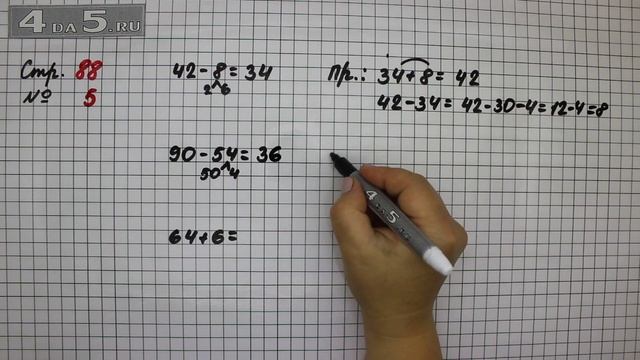 4DA5.RU
Стр. 88
№ 5
42 - 8 = 34
2 6
Пр.: 34 + 8 = 42
42 - 34 = 42 - 30 - 4 = 12 - 4 = 8
90 - 54 = 36
50 4
64 + 6 =
4DA5.RU